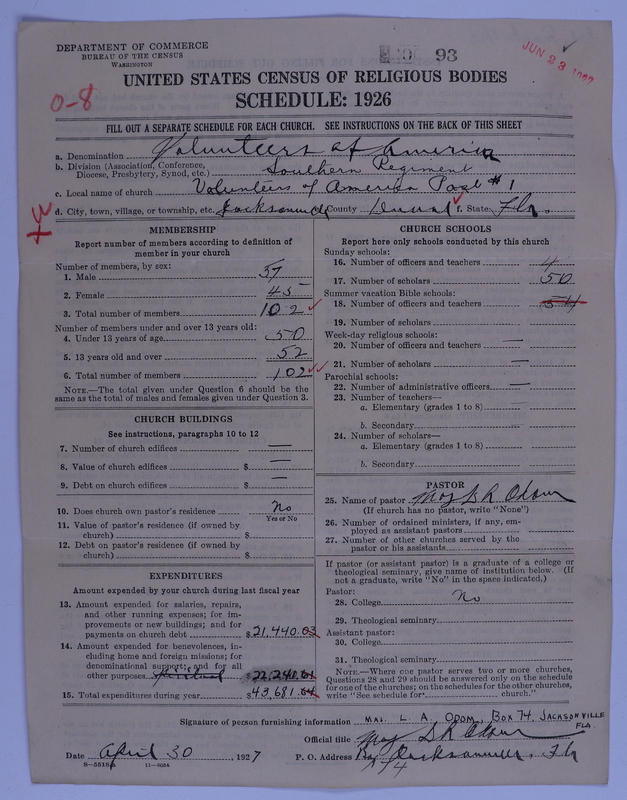 DEPARTMENT OF COMMERCE
BUREAU OF THE CENSUS
WASHINGTON
93
JUN 23
UNITED STATES CENSUS OF RELIGIOUS BODIES
SCHEDULE: 1926
0-8
FILL OUT A SEPARATE SCHEDULE FOR EACH CHURCH. SEE INSTRUCTIONS ON THE BACK OF THIS SHEET
a. Denomination Volunteers of America
b. Division (Association, Conference, Diocese, Presbytery, Synod, etc.) Southern Regiment
c. Local name of church Volunteers of America Post #1
d. City, town, village, or township, etc. Jacksonville County Duval f. State Fla.
MEMBERSHIP
Report number of members according to definition of
member in your church
Number of members, by sex:
1. Male 57
2. Female 45
3. Total number of members 102
Number of members under and over 13 years old:
4. Under 13 years of age 50
5. 13 years old and over 52
6. Total number of members 102
NOTE.—The total given under Question 6 should be the
same as the total of males and females given under Question 3.
CHURCH BUILDINGS
See instructions, paragraphs 10 to 12
7. Number of church edifices —
8. Value of church edifices $ —
9. Debt on church edifices $ —
10. Does church own pastor's residence No
Yes or No
11. Value of pastor's residence (if owned by
church) $
12. Debt on pastor's residence (if owned by
church) $
EXPENDITURES
Amount expended by your church during last fiscal year
13. Amount expended for salaries, repairs,
and other running expenses; for im-
provements or new buildings; and for
payments on church debt $21,440.03
14. Amount expended for benevolences, in-
cluding home and foreign missions; for
denominational support; and for all
other purposes $22,240.01
15. Total expenditures during year $43,681.04
CHURCH SCHOOLS
Report here only schools conducted by this church
Sunday schools:
16. Number of officers and teachers 4
17. Number of scholars 50
Summer vacation Bible schools:
18. Number of officers and teachers 54
19. Number of scholars
Week-day religious schools:
20. Number of officers and teachers —
21. Number of scholars —
Parochial schools:
22. Number of administrative officers —
23. Number of teachers—
a. Elementary (grades 1 to 8)
b. Secondary
24. Number of scholars—
a. Elementary (grades 1 to 8)
b. Secondary
PASTOR
25. Name of pastor Maj L A Odom
(If church has no pastor, write "None")
26. Number of ordained ministers, if any, em-
ployed as assistant pastors
27. Number of other churches served by the
pastor or his assistants
If pastor (or assistant pastor) is a graduate of a college or
theological seminary, give name of institution below. (If
not a graduate, write "No" in the space indicated.)
Pastor:
28. College No
29. Theological seminary
Assistant pastor:
30. College
31. Theological seminary
NOTE.—Where one pastor serves two or more churches,
Questions 28 and 29 should be answered only on the schedule
for one of the churches; on the schedules for the other churches,
write "See schedule for church."
Signature of person furnishing information MAJ. L. A. ODOM, BOX 74, JACKSONVILLE
FLA.
Official title Maj L A Odom
Date April 30, 1927 P. O. Address Box 74 Jacksonville, Fla
8-5518a 11-8024